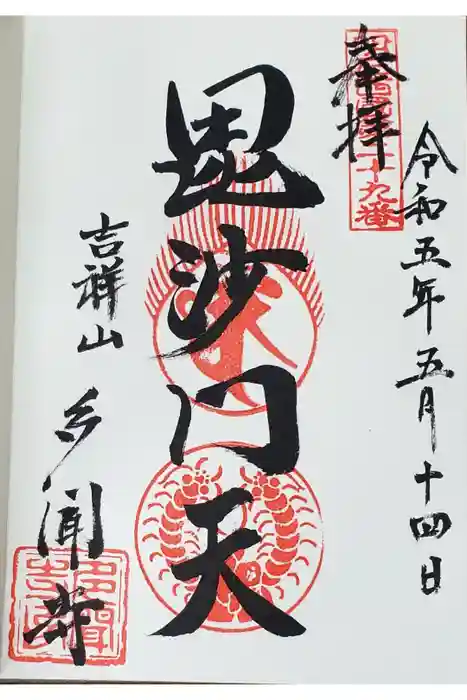 令和五年五月十四日
奉拝
毘沙門天
吉祥山
多聞寺